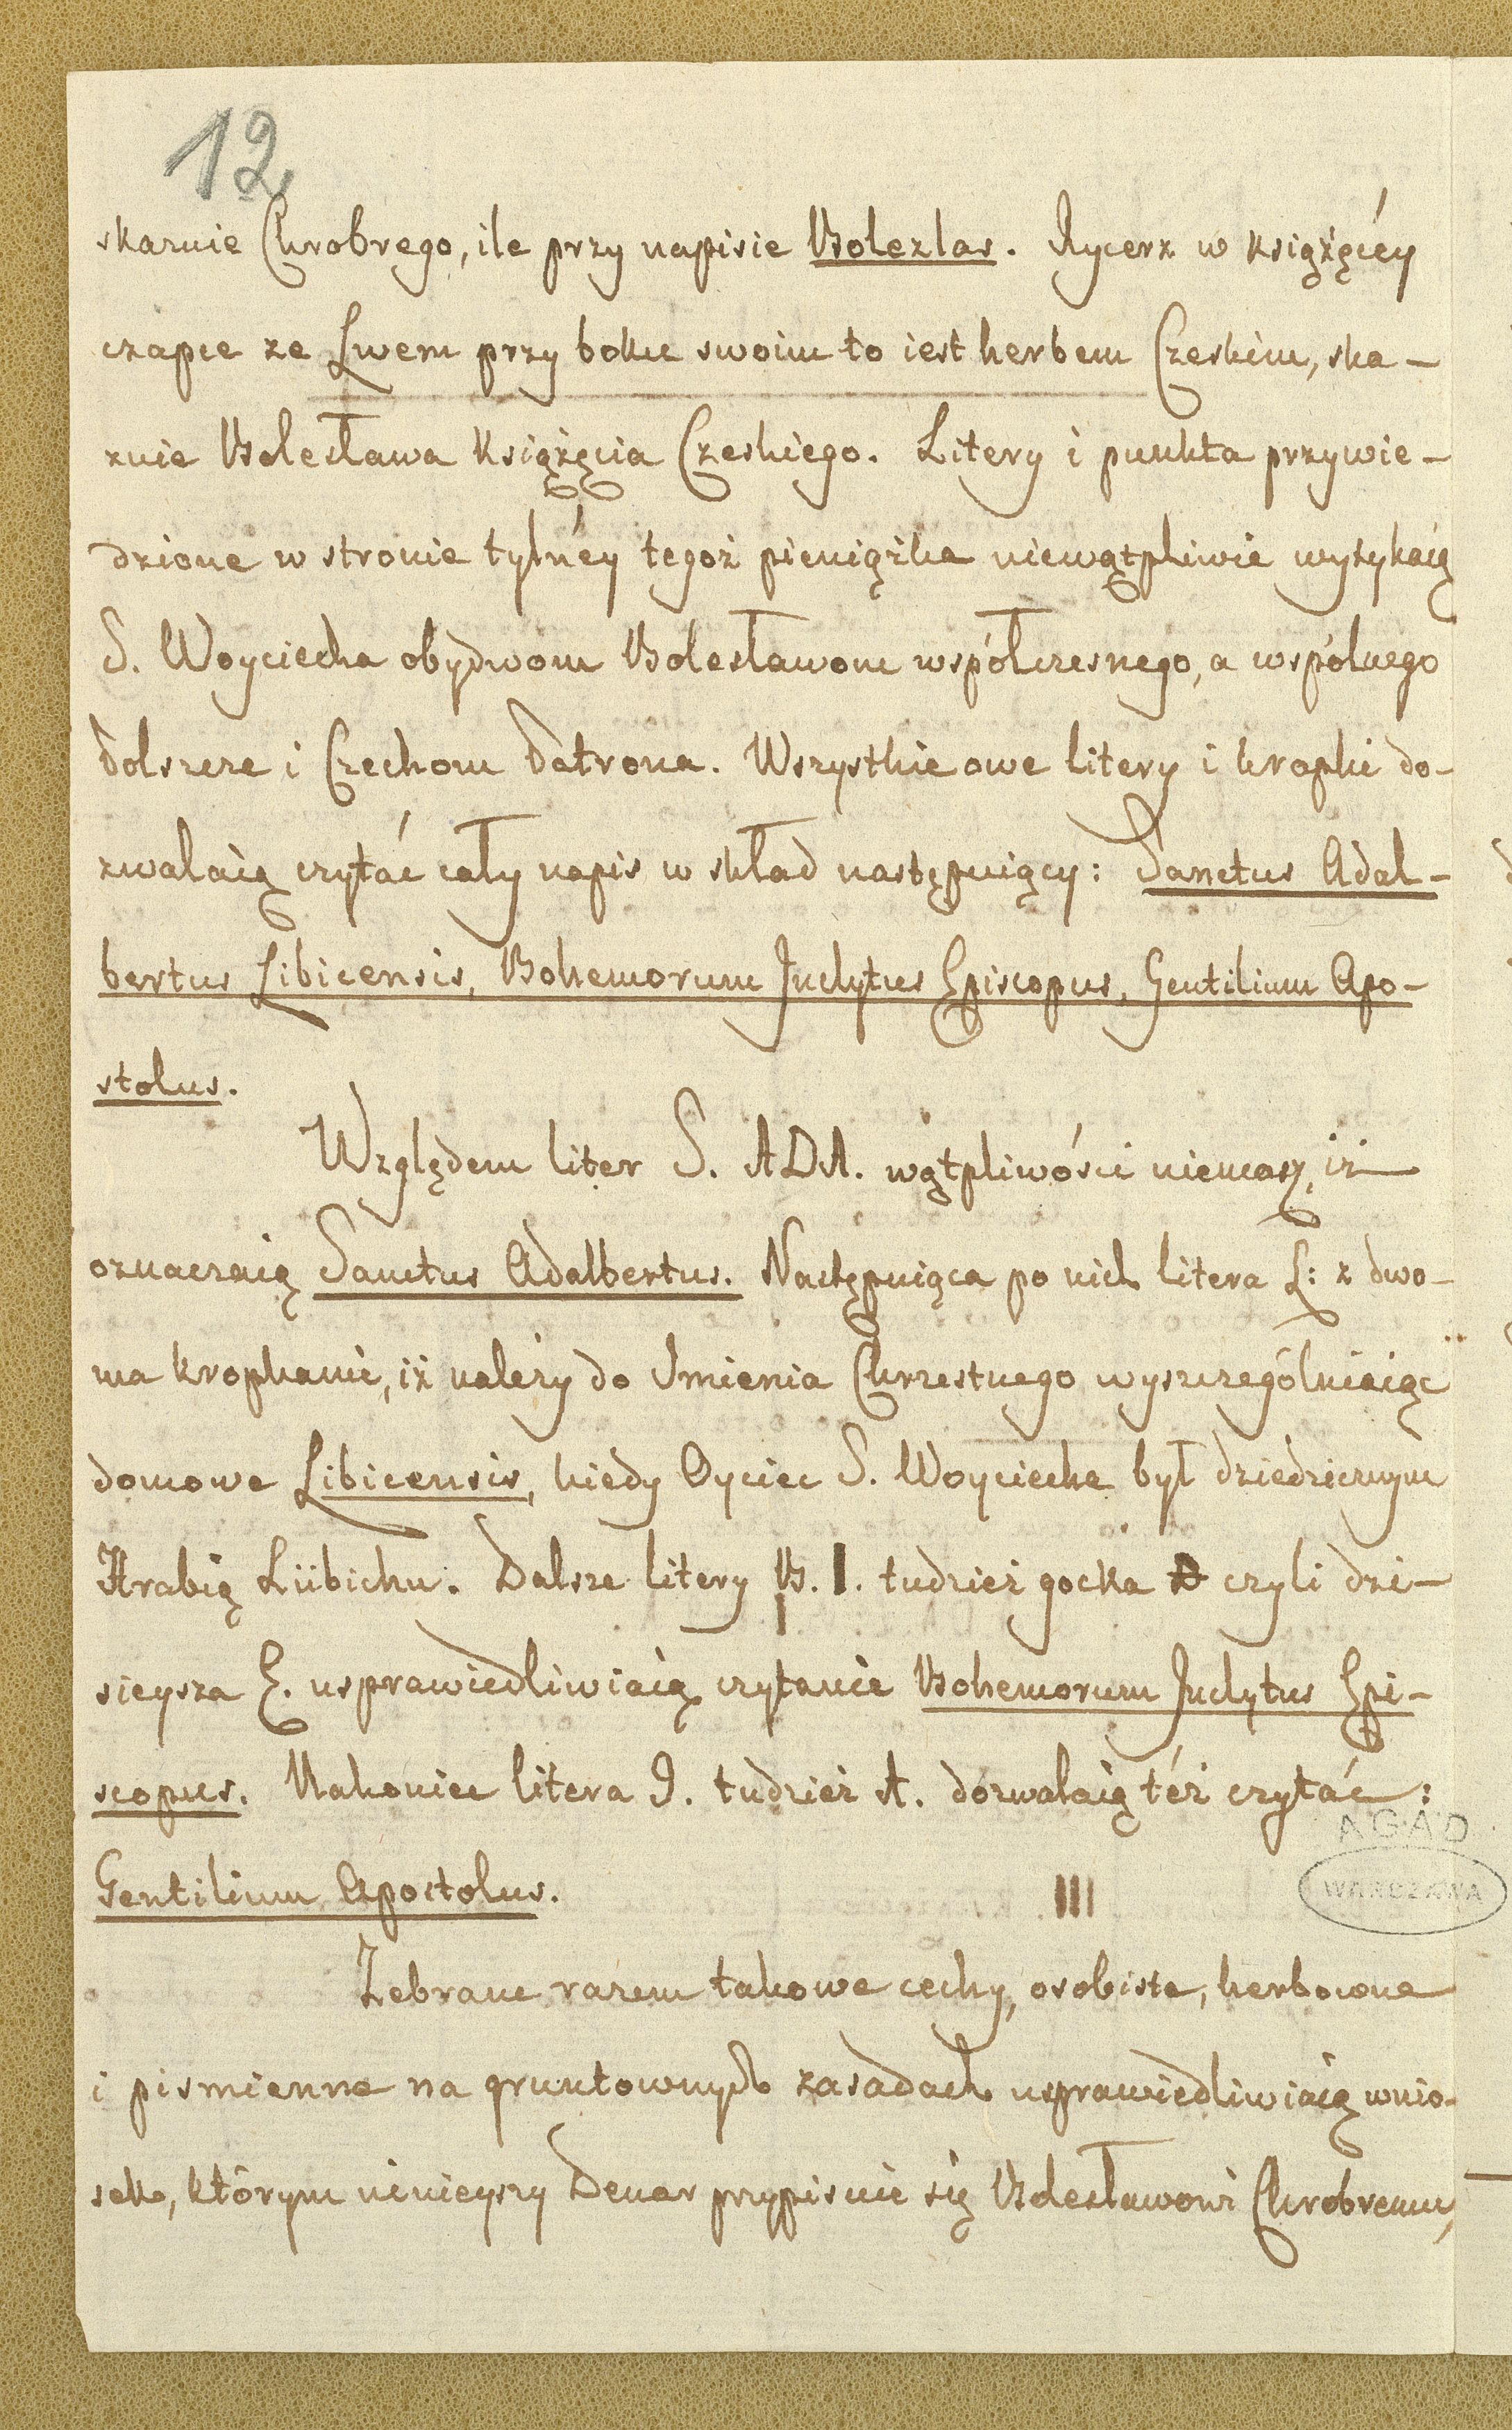 12
skazuie Chrobrego, ile przy napisie Bolezlas. Rycerz w Książęcéy
czapce ze Lwem przy boku swoim to iest herbem Czeskim, ska-
zuie Bolesława Książęcia Czeskiego. Litery i punkta przywie-
dzione w stronie tylnéy tegoż pieniążka niewątpliwie wytykaią
S. Woyciecha obydwom Bolesławom współczesnego, a wspólnego
Polszcze i Czechom Patrona. Wszystkie owe litery i kropki do-
zwalaią czytać cały napis w skład następuiący: Sanctus Adal-
bertus Libicensis, Bohemorum Inclytus Episcopus, Gentilium Apo-
stolus.
Względem liter S. ADA. wątpliwości niemasz, iż
oznaczaią Sanctus Adalbertus. Następuiąca po nich litera L: z dwo-
ma kropkami, iż należy do Imienia Chrzestnego wyszczególniaiąc
domowe Libicensis, kiedy Oyciec S. Woyciecha był dziedzicznym
Hrabią Lübichu. Dalsze litery B. I. tudzież gocka Đ czyli dzi-
sieysza E. usprawiedliwiaią czytanie Bohemorum Inclytus Epi-
scopus. Nakoniec litera G. tudzież A. dozwalaią też czytać:
Gentilium Apostolus.
III
AGAD
WARSZAWA
Zebrane razem takowe cechy, osobiste, herbowne
i pismienne na gruntownych zasadach usprawiedliwiaią wnio-
sek, którym ninieyszy Denar przypisuie się Bolesławowi Chrobremu,